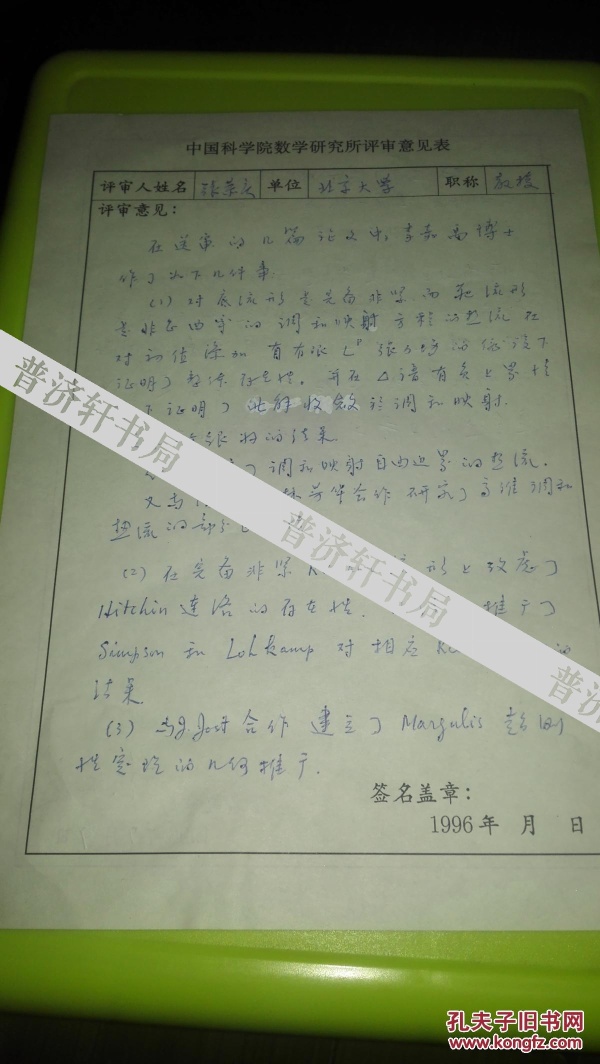 中国科学院数学研究所评审意见表
评审人姓名 张恭庆 单位 北京大学 职称 教授
评审意见：
在送审的几篇论文中，李嘉禹博士
作了以下几件事：
(1) 对底流形是完备非紧，而靶流形
是非正曲率的调和映射方程的热流，在
对初值 有 L^p 张力场的假设下
证明了整体存在性，并在△谱有 上界
下证明了 收敛于调和映射.
的结果.
了调和映射自由边界的热流.
又与 合作研究了高维调和
热流的部分
(2) 在完备非紧 K 形上考虑了
Hitchin 连络的存在性. 推广了
Simpson 和 Lohkamp 对相应 的
结果
(3) 与J.Jost合作建立了 Margulis 超刚
性定理的几何推广.
签名盖章：
1996年 月 日
普济轩书局
普济轩书局
普济轩书局
普济
孔夫子旧书网
kongfz.com